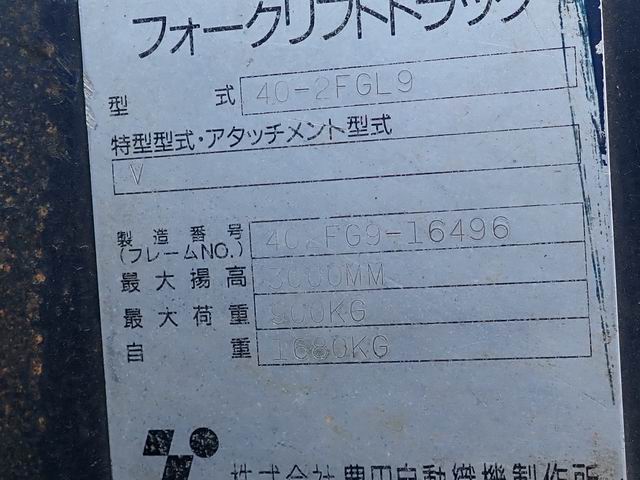 フォークリフトトラック
型式 40-2FGL9
特型型式・アタッチメント型式
V
製造番号 40-FG9-16496
(フレームNO.)
最大揚高 3000MM
最大荷重 900KG
自重 1680KG
株式会社豊田自動織機製作所